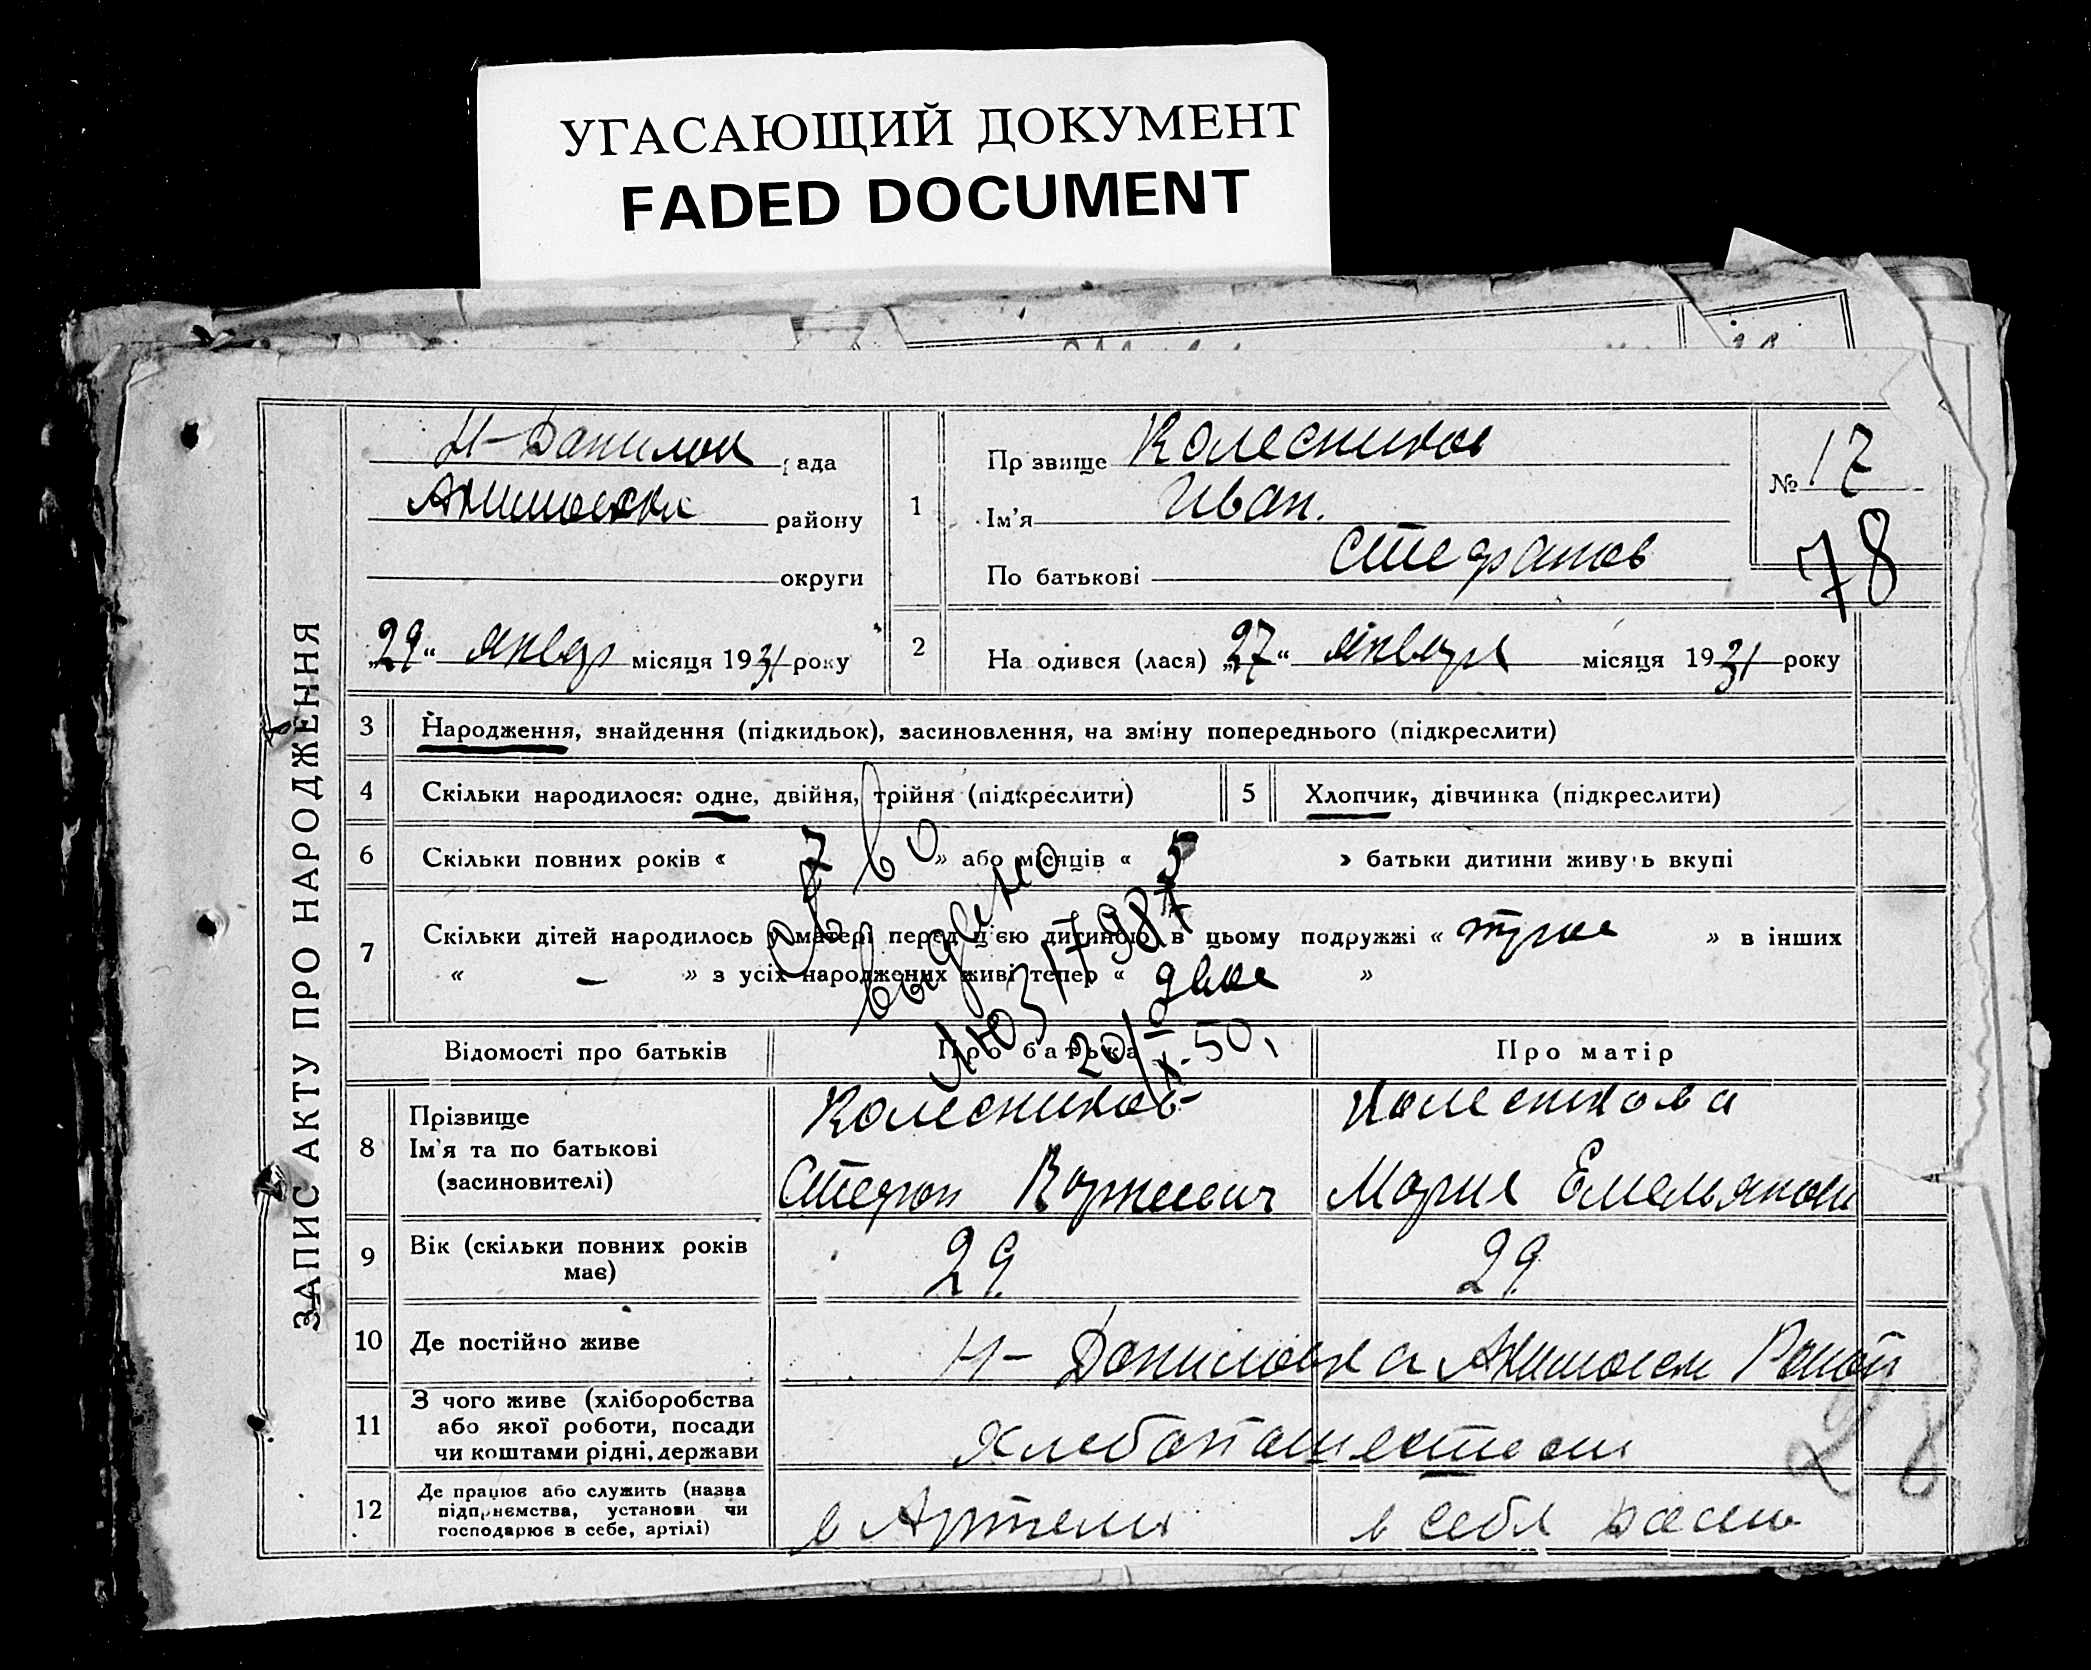 УГАСАЮЩИЙ ДОКУМЕНТ
FADED DOCUMENT
ЗАПИС АКТУ ПРО НАРОДЖЕННЯ
Н-Данилов рада
району
округи
„29“ январ місяця 1931 року
1
Пр звище Колесников
Ім'я Иван.
По батькові Стефанов
№ 17
78
2 На одився (лася) „27“ января місяця 1931 року
3 Народження, знайдення (підкидьок), засиновлення, на зміну попереднього (підкреслити)
4 Скільки народилося: одне, двійня, трійня (підкреслити) 5 Хлопчик, дівчинка (підкреслити)
6 Скільки повних років « 7 » або місяців « 5 » батьки дитини живуть вкупі
7 Скільки дітей народилось у матері перед цією дитиною в цьому подружжі « трое » в інших
« – » з усіх народжених живі тепер « двое »
Св во
выдано
ЛЮ 317987
20/X-50,
Відомості про батьків Про батька Про матір
8 Прізвище Колесников Колесникова
Ім'я та по батькові
(засиновителі) Стефан Мария Емельянов
9 Вік (скільки повних років має) 29 29
10 Де постійно живе Н-Даниловка Район
11 З чого живе (хліборобства
або якої роботи, посади
чи коштами рідні, держави
28
12 Де працює або служить (назва
підприємства, установи чи
господарює в себе, артілі) в Артели в себя